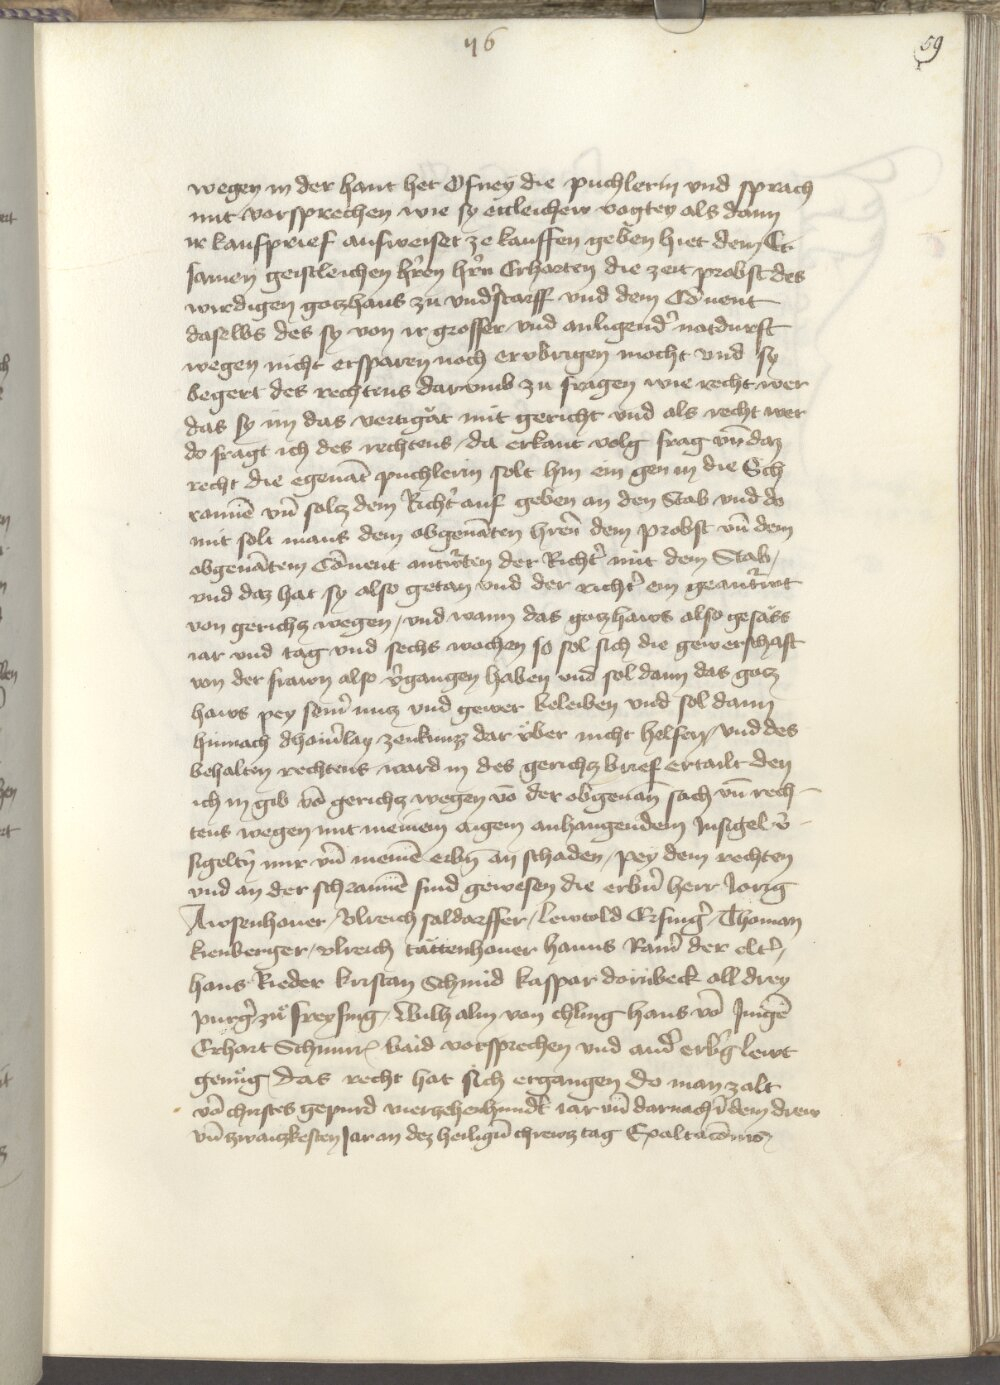 76
59
wegen in der hant het Ofney die puchlerin vnd sprach
mit vorsprechen wie sy ettleichew vogtey als dann
ir kaufprief aufweiset ze kauffen geben hiet dem Er
samen geistleichen hren hrn Erharten die zeit probst des
wirdigen gotzhaus zu vnderstarff vnd dem Conuent
daselbs des sy von ir grosser vnd anligender notdurft
wegen nicht ersparen noch ervbrigen mocht vnd sy
begert des rechtens darvmb zu fragen wie recht wer
das sy im das vertigät mit gericht vnd als recht wer
do fragt ich des rechtens da erkant volg frag vnd daz
recht die egenät puchlerin solt hin ein gen in die Sch
rannē vn̄ soltz dem Richter auf geben an den Stab vnd do
mit solt mans dem obgenāten hren dem probst vn̄ dem
obgenātem Conuent antwrten der Richter mit dem Stab /
vnd daz hat sy also getan vnd der richter em geantwrt
von gerichtz wegen / vnd wann das gotzhaws also gesäss
iar vnd tag vnd sechs wochen so sol sich die gewerschaft
von der frawn also vergangen haben vnd sol dann das gotz
haws pey seinr nutz vnd gewer beleiben vnd sol dann
hinnach dhainrlay zeukunz dar vber nicht helfen / vnd des
behalten rechtens ward in des gerichtz brief ertailt den
ich in gib vō gerichtz wegen vō der obgenan̄ sach vn̄ rech
tens wegen mit meinem aigem anhangendem Insigel v̄
sigelten mir vn̄ meinē erbn̄ an schaden / pey dem rechten
vnd an der schrannē sind gewesen die erbn̄ herr Jorig
Awsenhouer / Vlreich saldorffer / lewtold Ersinger / Thoman
kienberger / vlreich tättenhouer hanns Ramer der elter /
hans Rieder kristan Schmid kaspar dornbeck all drey
purger zů freysing / Wilhalm von chling hans vō
Erhart Schnurr baid vorsprechen vnd ander erbrg lewt
genůg das recht hat sich ergangen do man zalt
vō christes gepurd vierzehenhundert iar vn̄ darnach ī dem drew
vn̄ zwaintzkesten Jar an dez heiligen chrewtz tag Exaltacōnis